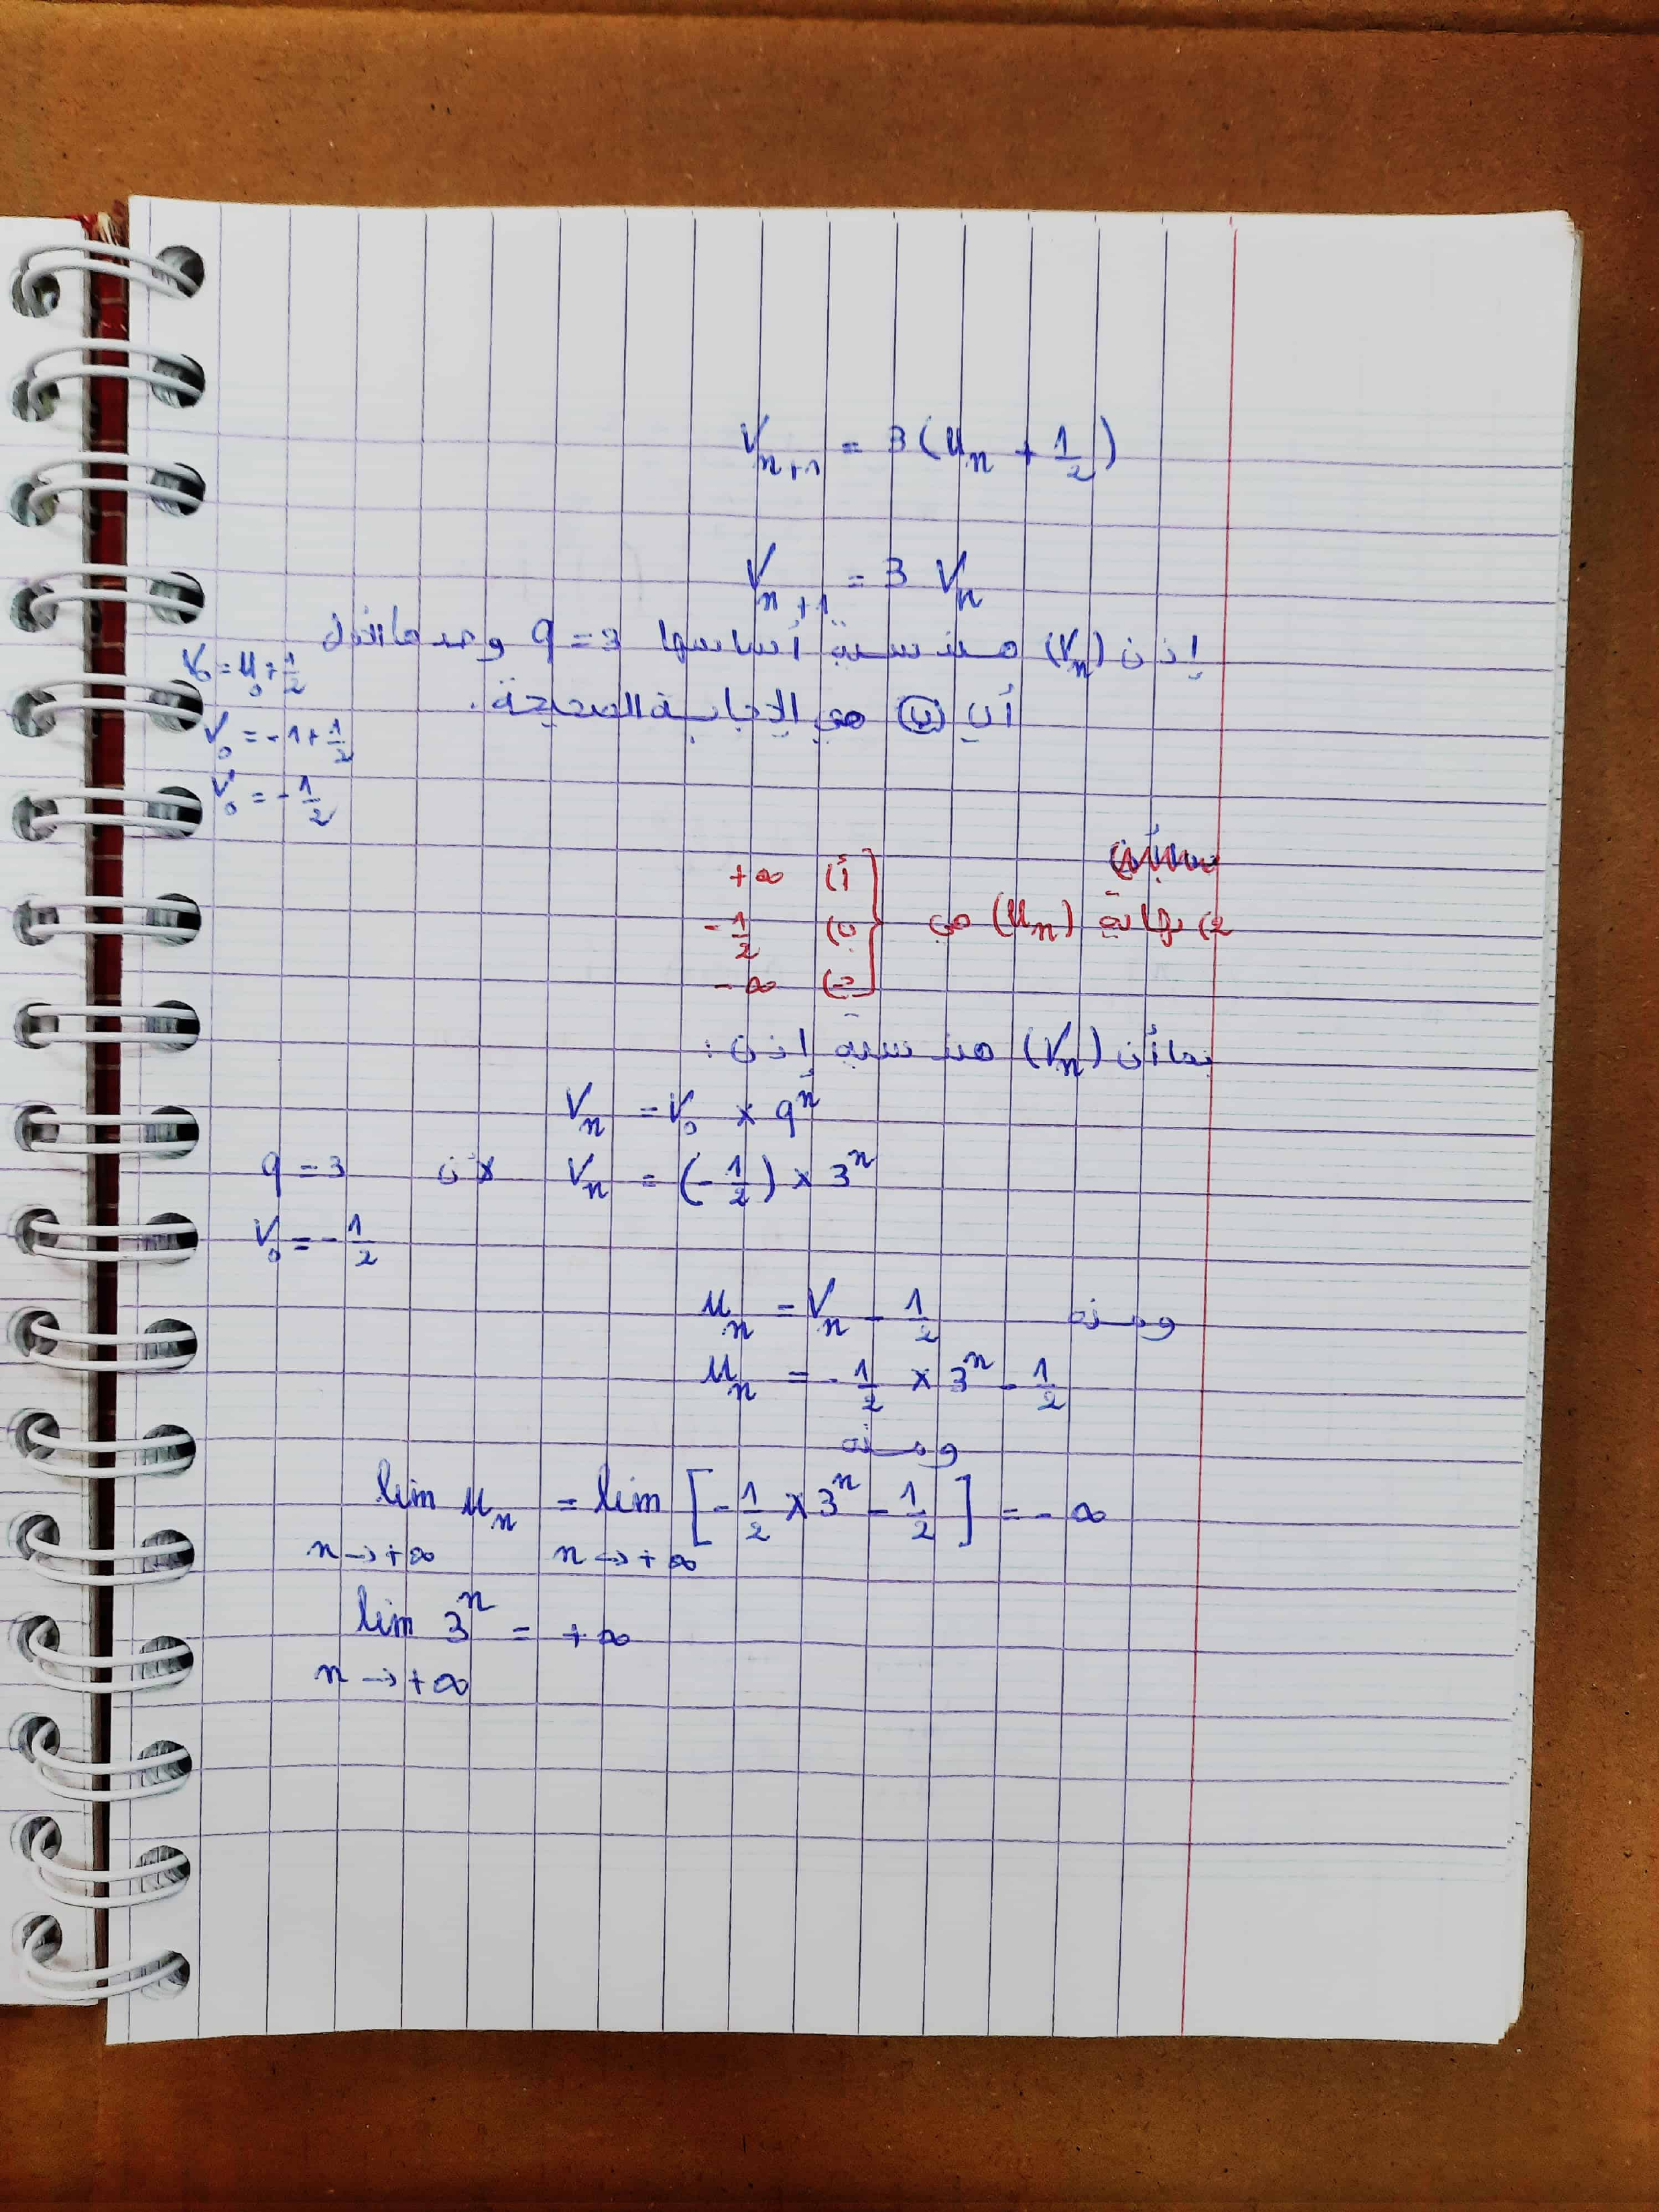 V_{n+1} = 3(u_n + 1/2)
V_{n+1} = 3 V_n
إذن (V_n) هندسية أساسها q = 3 وحدها الأول
V_0 = u_0 + 1/2
V_0 = -1 + 1/2
V_0 = -1/2
أي (ب) هي الإجابة الصحيحة.
2) نهاية (u_n) هي
أ) +∞
ب) -1/2
ج) -∞
بما أن (V_n) هندسية إذن :
V_n = V_0 × q^n
V_n = (-1/2) × 3^n لأن q = 3
V_0 = -1/2
ومنه u_n = V_n - 1/2
u_n = -1/2 × 3^n - 1/2
ومنه
lim u_n = lim [-1/2 × 3^n - 1/2] = -∞
n → +∞ n → +∞
lim 3^n = +∞
n → +∞